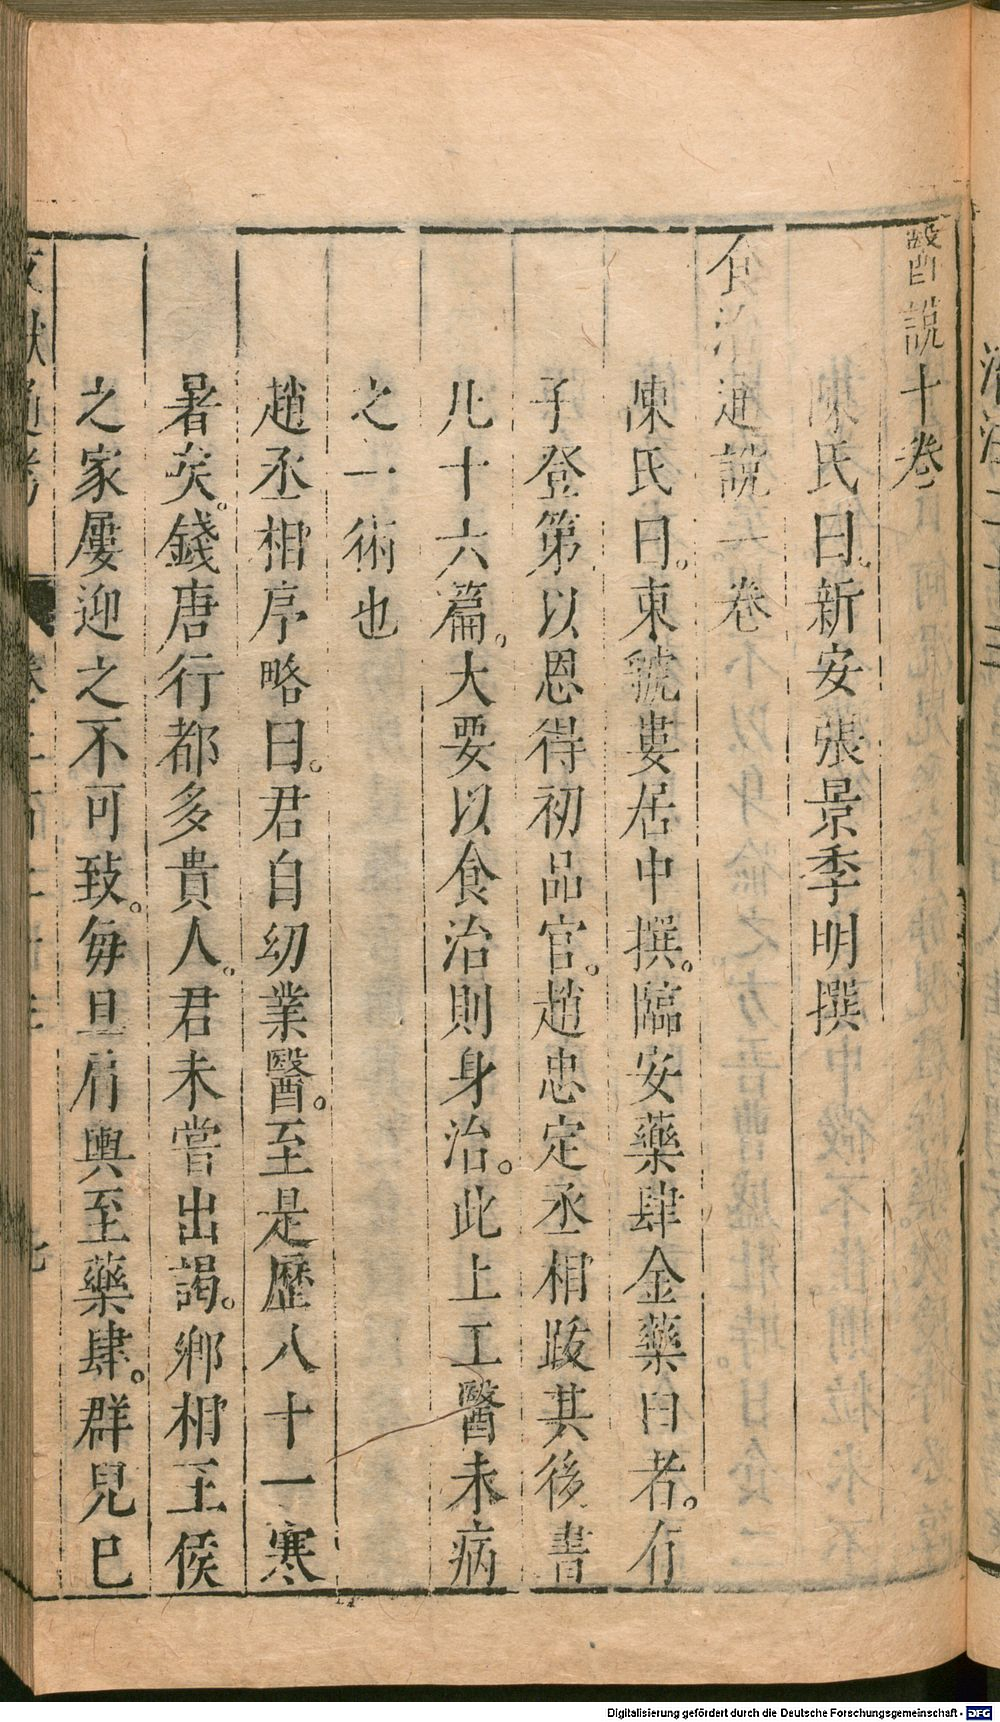 醫說十卷
陳氏曰。新安張景季明撰
食治通說一卷
陳氏曰。東虢婁居中撰。臨安藥肆金藥臼者。有
子登第以恩得初品官。趙忠定丞相跋其後書
凡十六篇。大要以食治則身治。此上工醫未病
之一術也
趙丞相序略曰。君自幼業醫。至是歷八十一寒
暑矣。錢唐行都多貴人。君未嘗出謁。鄉相王侯
之家屢迎之不可致。每旦肩輿至藥肆。羣兒巳
文獻通考
卷二百二十三
Digitalisierung gefördert durch die Deutsche Forschungsgemeinschaft - DFG